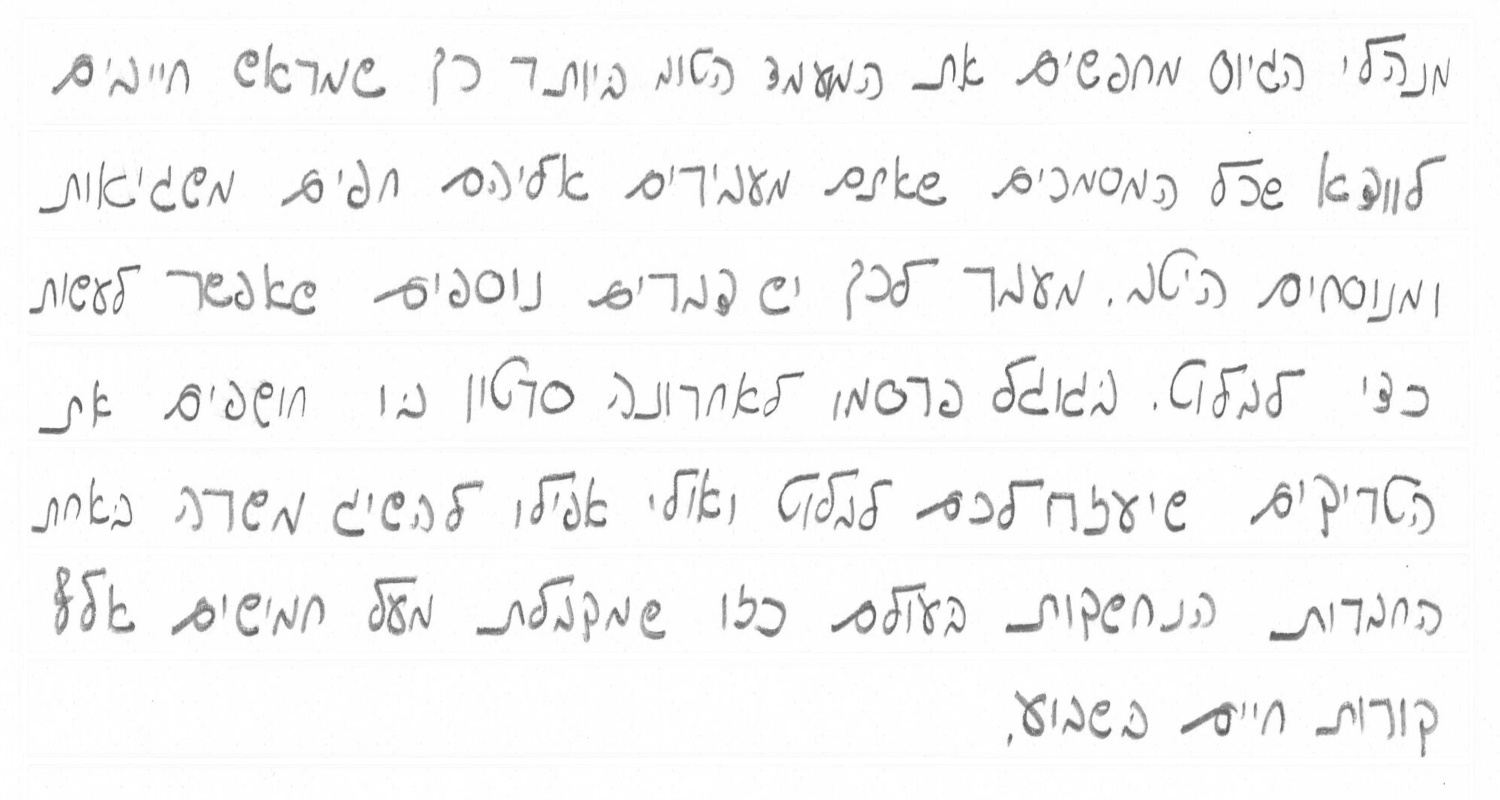 מנהלי הגיוס מחפשים את המעמד הטוב ביותר כך שמראש חייבים
לוודא שכל המסמכים שאתם מעבירים אליהם חפים משגיאות
ומנוסחים היטב. מעבר לכך יש דברים נוספים שאפשר לעשות
כדי לבלוט. בגוגל פרסמו לאחרונה סרטון בו חושפים את
הטריקים שיעזרו לכם לבלוט ואולי אפילו להשיג משרה באחת
החברות הנחשקות בעולם כזו שמקבלת מעל חמישים אלף
קורות חיים בשבוע.